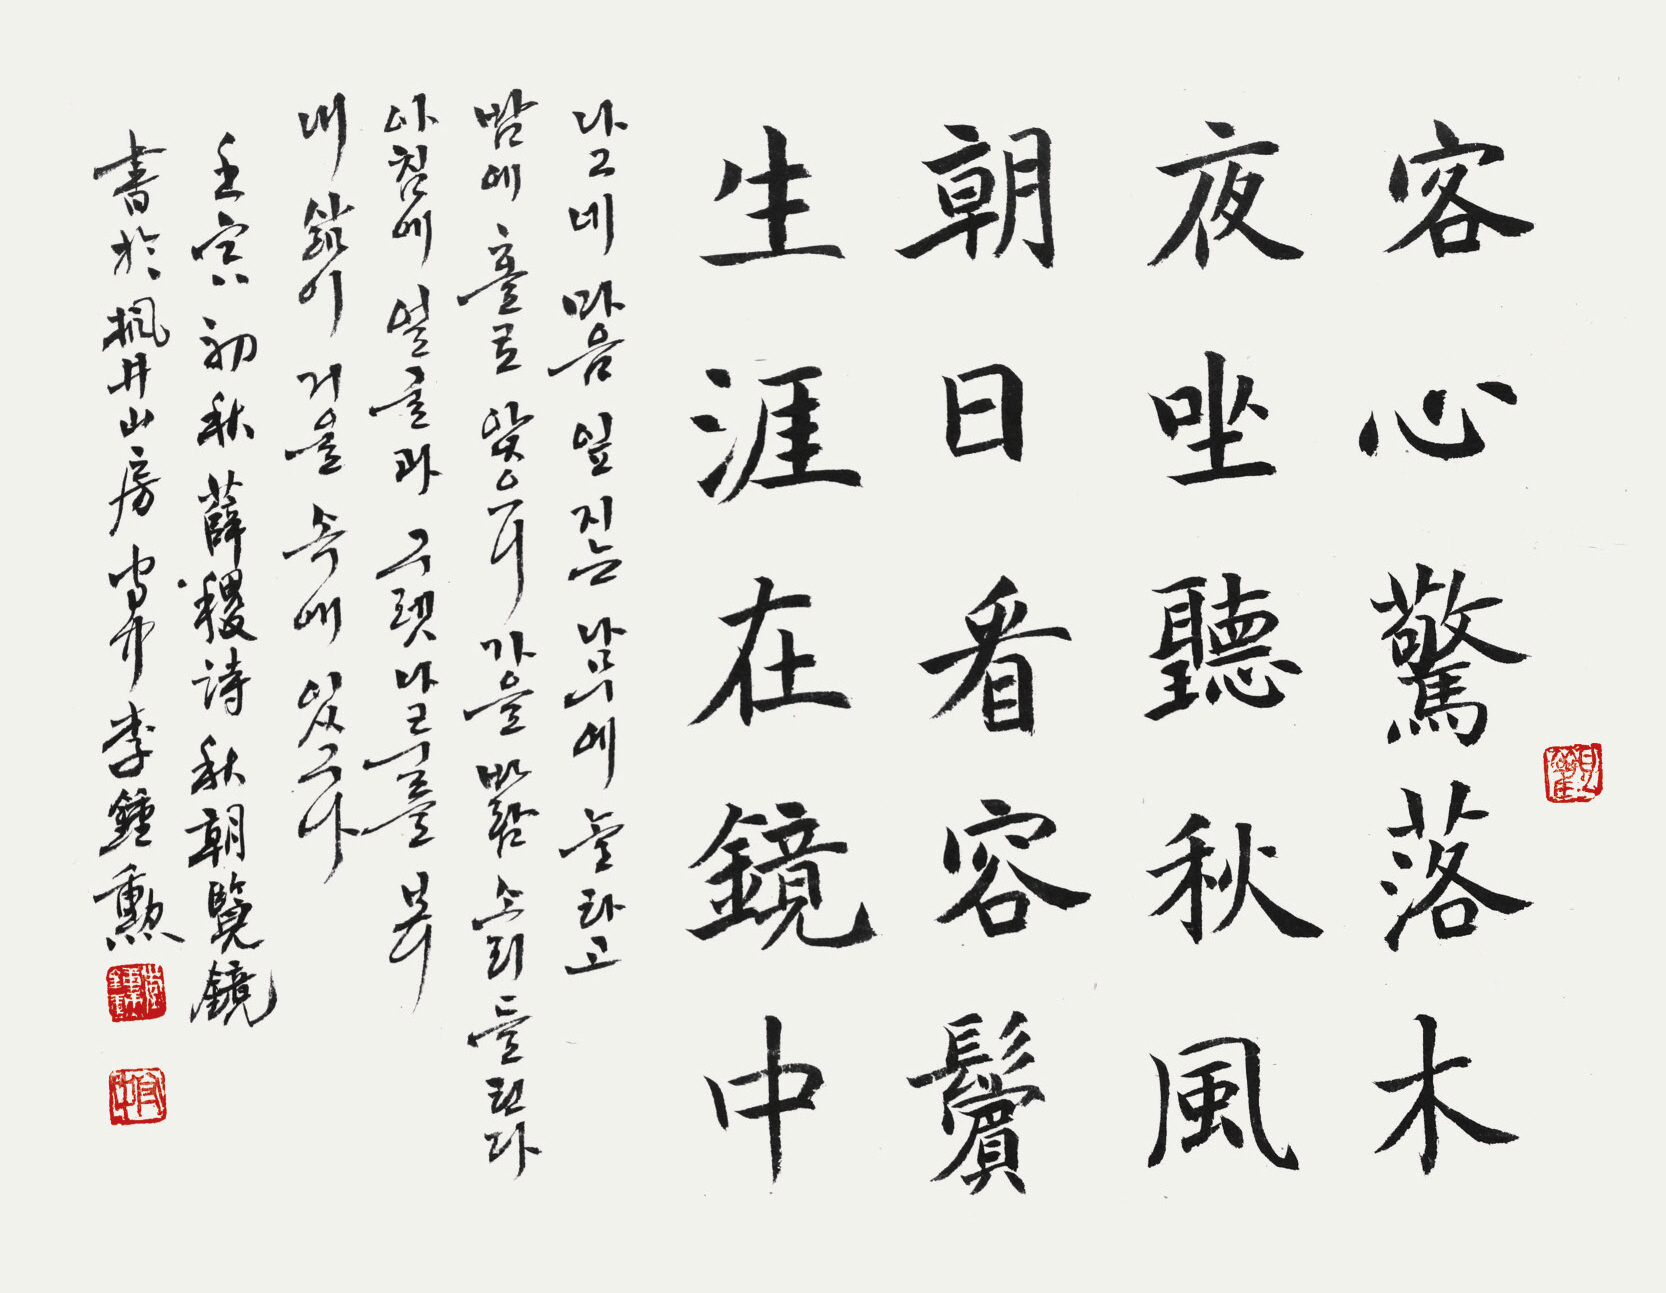 客心驚落木
夜坐聽秋風
朝日看容鬢
生涯在鏡中
나그네 마음 잎 지는 나무에 놀라고
밤에 홀로 앉으니 가을 바람 소리 들린다
아침에 얼굴과 구렛나루를 보니
내 삶이 거울 속에 있구나
壬寅初秋 薛稷詩秋朝覽鏡
書於楓井山房 李鍾勳